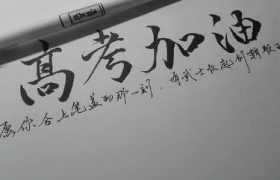 高考加油
愿你合上笔盖的那一刻，有武士收起刀鞘般的